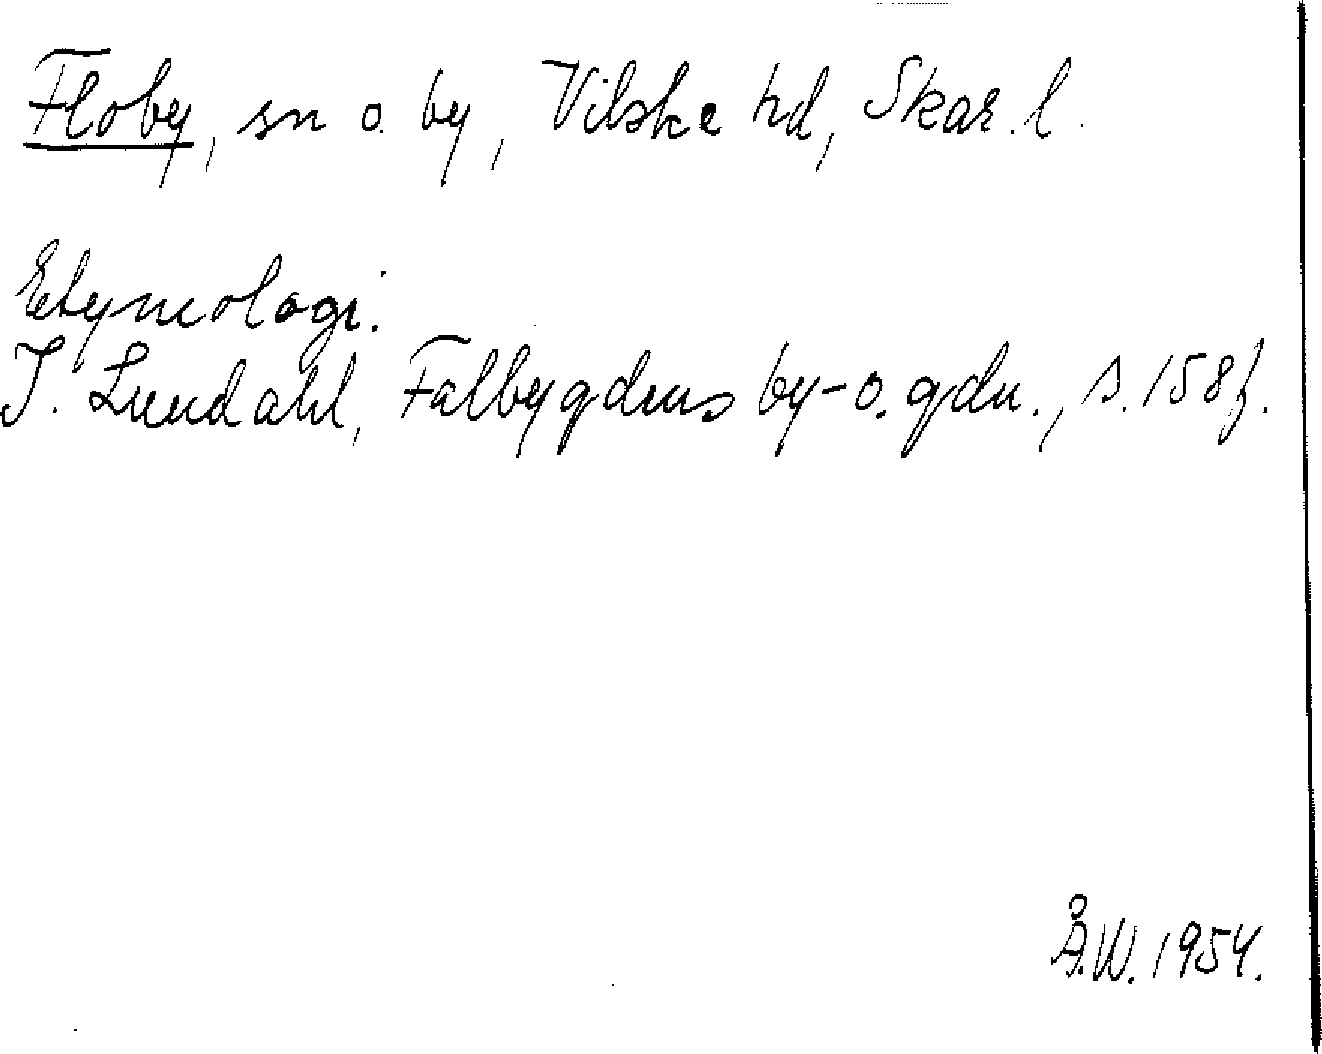 Floby, sn o. by, Vilske hd, Skar. l.
Etymologi.
I. Lundahl, Falbygdens by- o. gdn., s. 158 f.
Å.W. 1954.